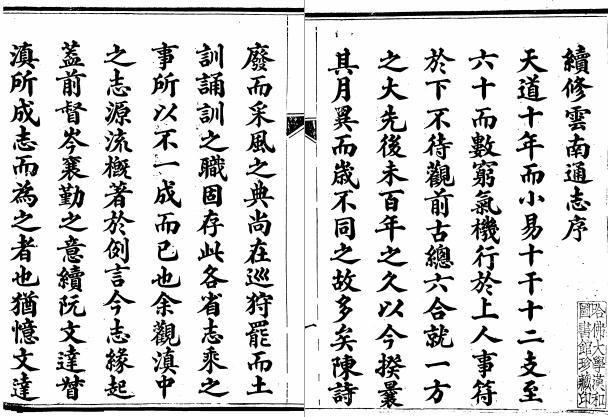 續修雲南通志序
天道十年而小易十干十二支至
六十而數窮氣機行於上人事符
於下不待觀前古總六合就一方
之大先後未百年之久以今揆曩
其月異而歲不同之故多矣陳詩
廢而采風之典尚在巡狩罷而土
訓誦訓之職固存此各省志乘之
事所以不一成而已也余觀滇中
之志源流概著於例言今志緣起
蓋前督岑襄勤之意續阮文達督
滇所成志而為之者也猶憶文達
哈佛大學漢和
圖書館珍藏印